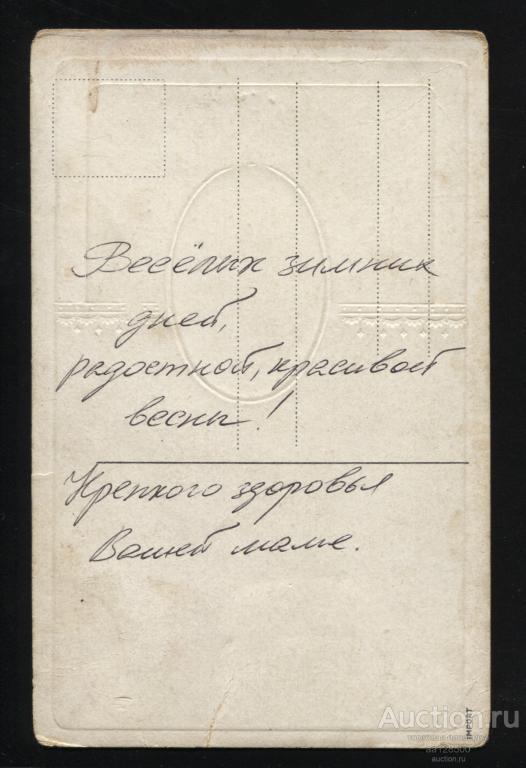 Весёлых зимних
дней,
радостной, красивой
весны!
Крепкого здоровья
Вашей маме.
IMPORT
Auction.ru
aa128500
auction.ru